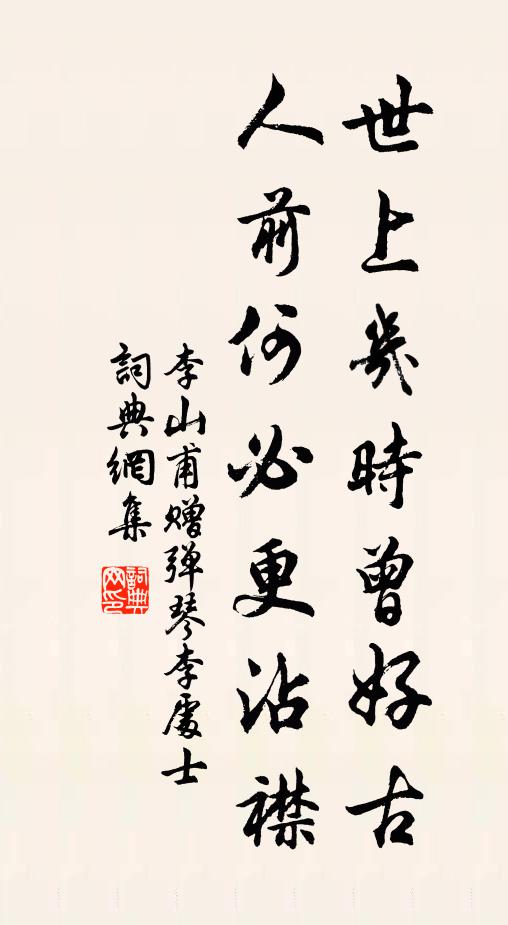 世上幾時曾好古
人前何必更沾襟
李山甫赠弹琴李處士
詞典網集
詞典
网印